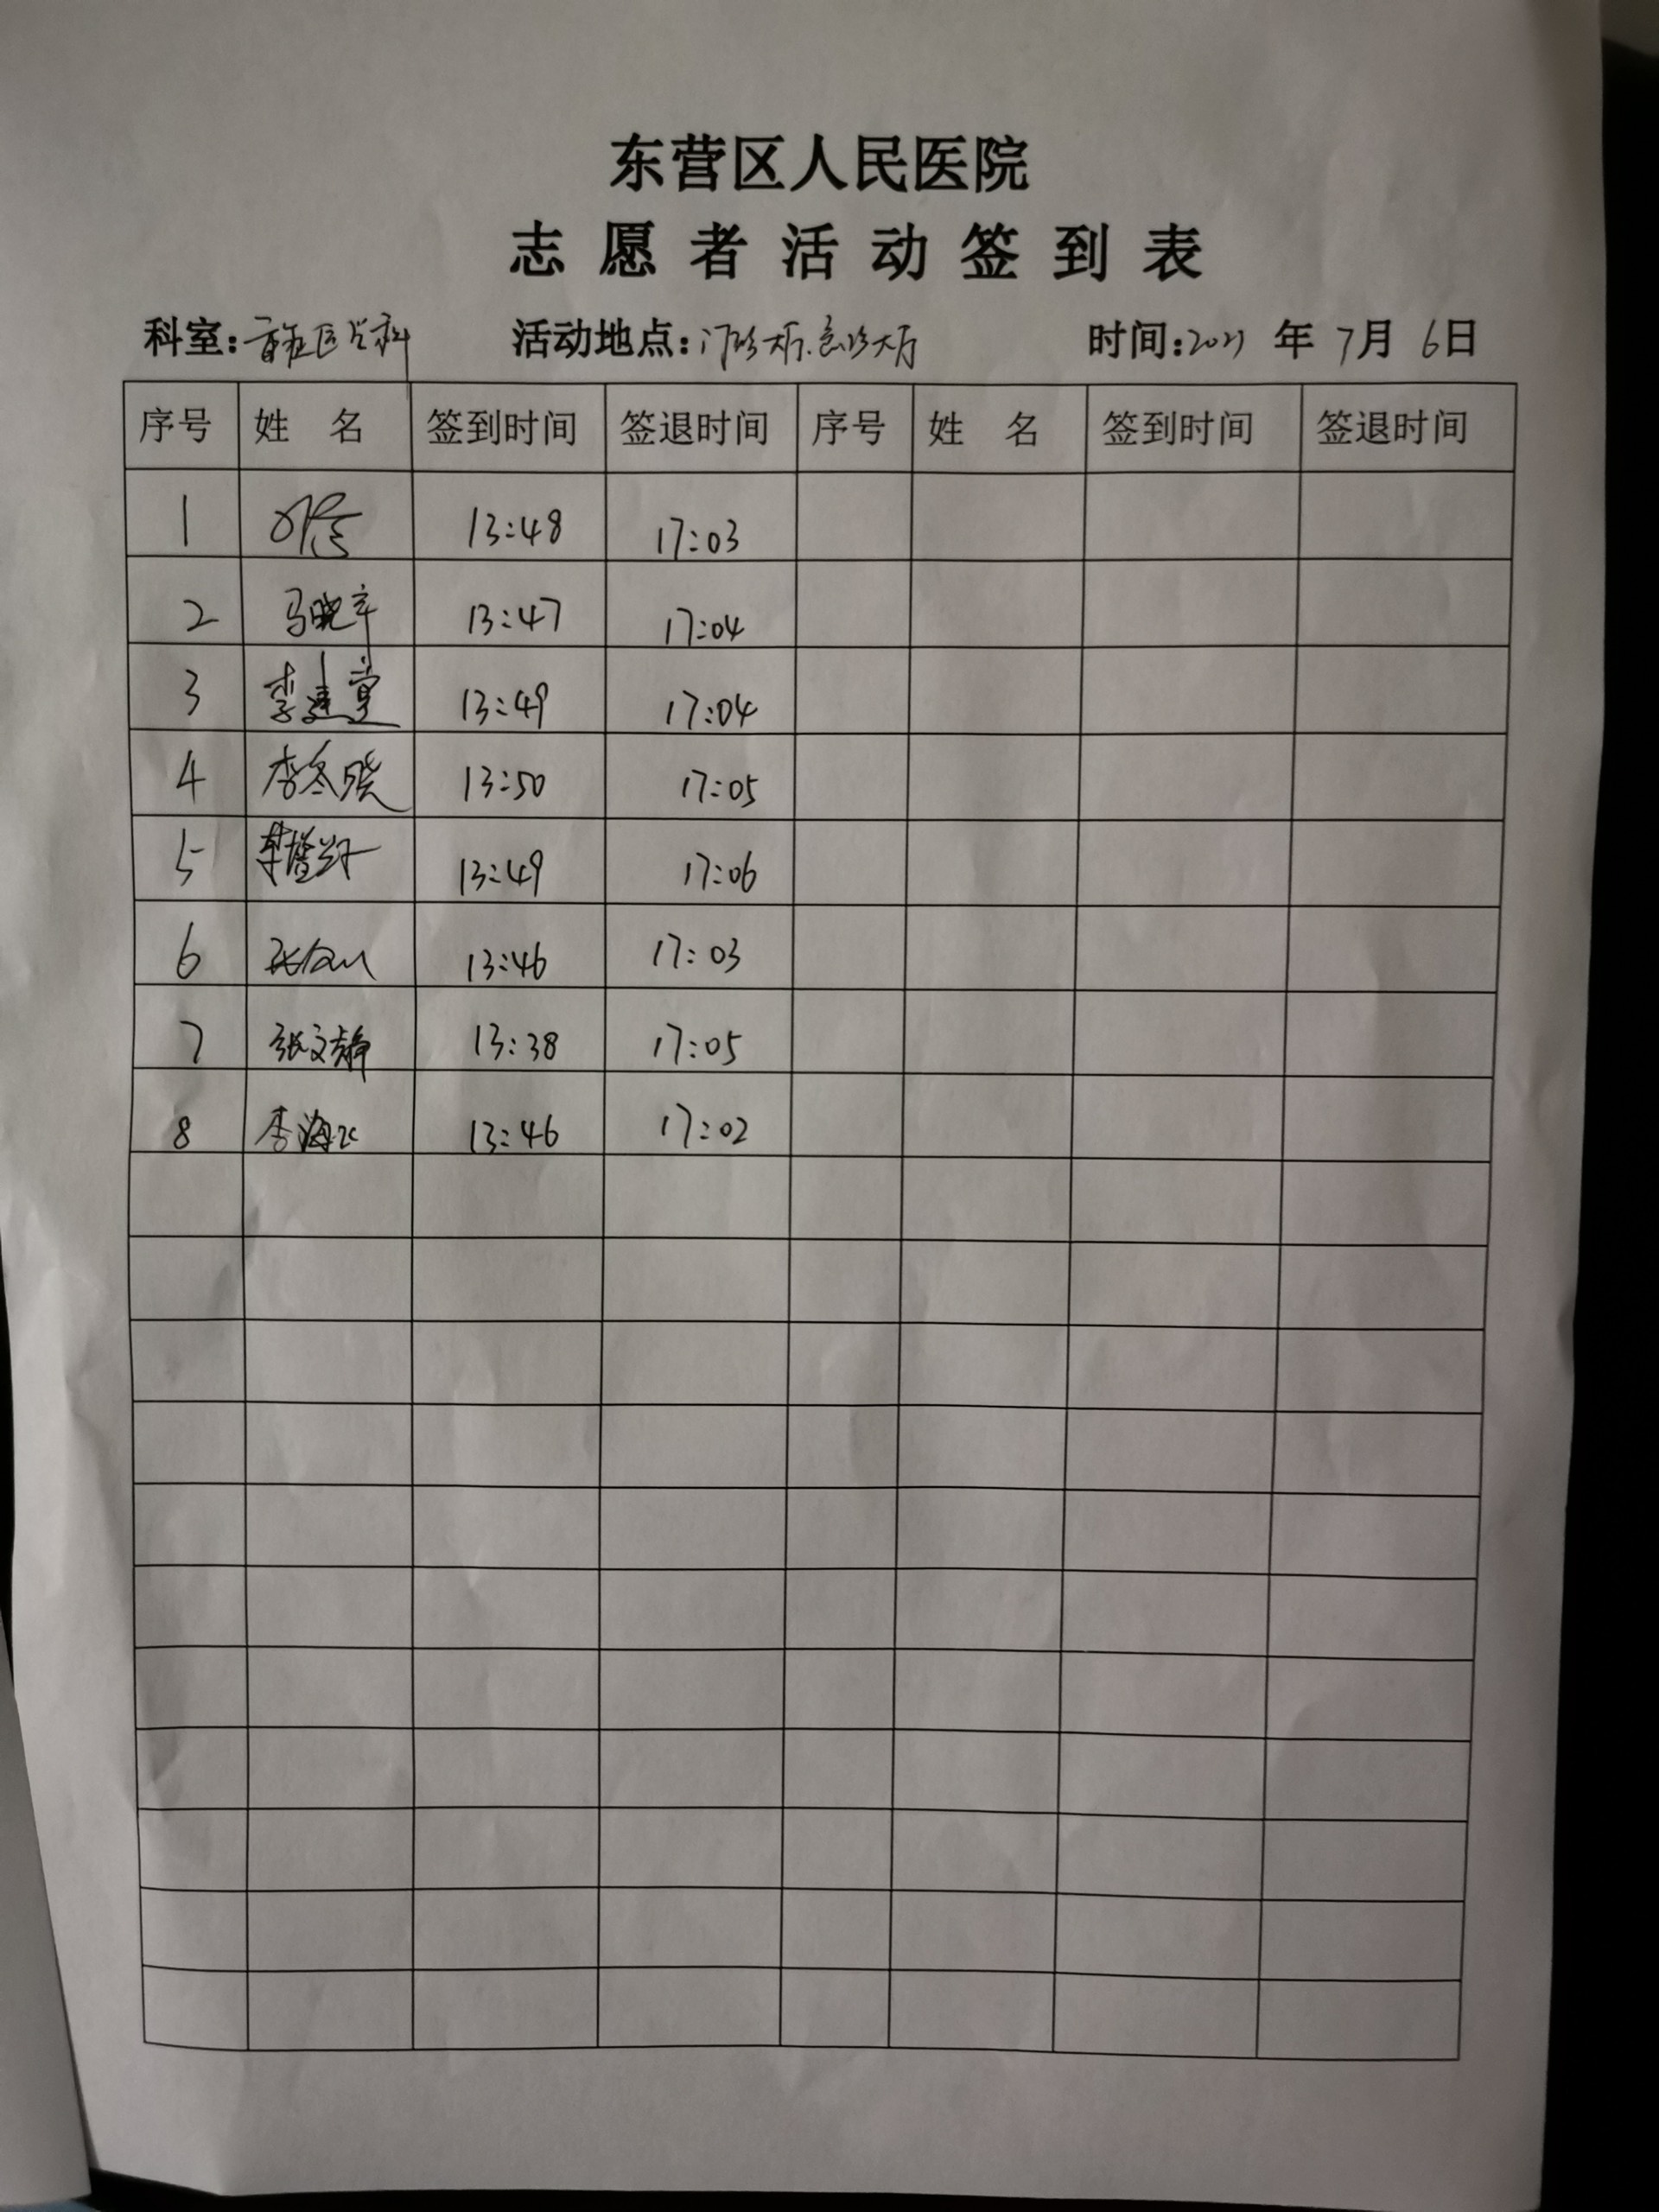 东营区人民医院
志愿者活动签到表
科室:重症医学科 活动地点:门诊大厅.急诊大厅 时间:2021年7月6日
序号 姓 名 签到时间 签退时间 序号 姓 名 签到时间 签退时间
1 13:48 17:03
2 马晓辛 13:47 17:04
3 李建堂 13:49 17:04
4 李冬晓 13:50 17:05
5 13:49 17:06
6 13:46 17:03
7 张文静 13:38 17:05
8 李海 13:46 17:02